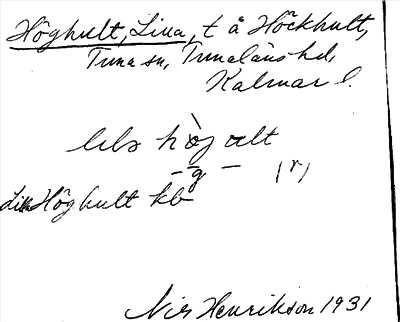 Höghult, Lilla, t å Höckhult,
Tuna sn, Tunaläns hd,
Kalmar l.
hög ult
– g – (r)
Lilla Höghult kb
Nils Henrikson 1931